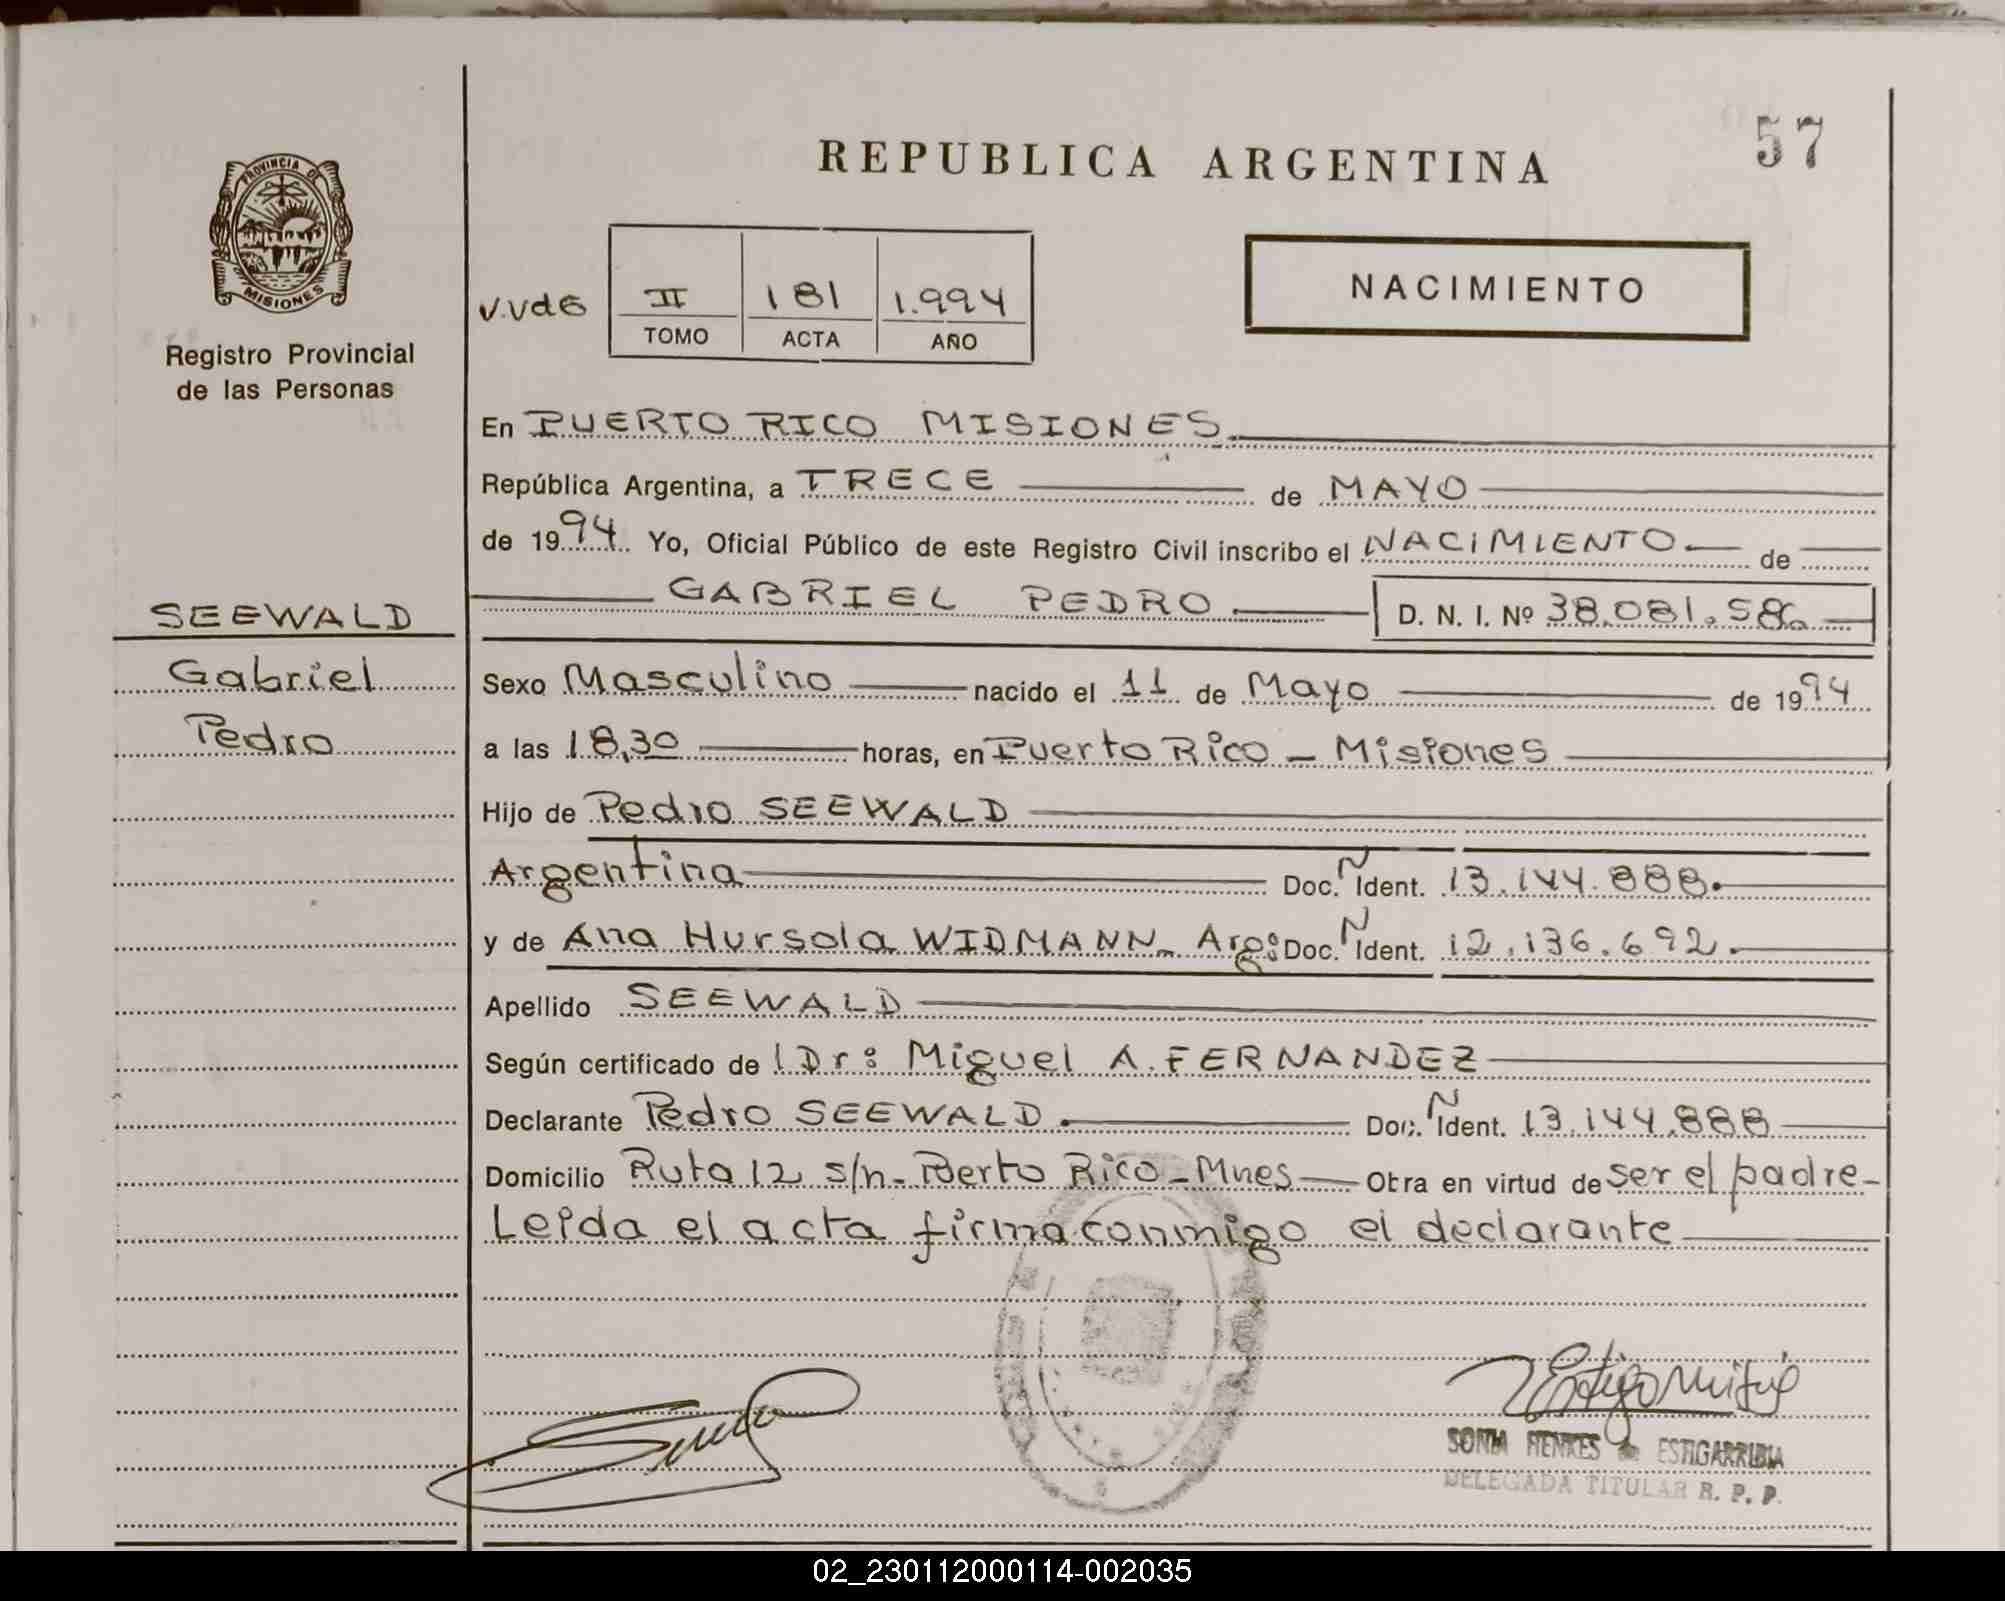 57
REPUBLICA ARGENTINA
PROVINCIA DE
MISIONES
Registro Provincial
de las Personas
V.Vd6
II 181 1.994
TOMO ACTA AÑO
NACIMIENTO
En PUERTO RICO MISIONES
República Argentina, a TRECE de MAYO
de 1994. Yo, Oficial Público de este Registro Civil inscribo el NACIMIENTO de
GABRIEL PEDRO D. N. I. Nº 38.081.58
SEEWALD
Gabriel
Pedro
Sexo Masculino nacido el 11 de Mayo de 1994
a las 18,30 horas, en Puerto Rico - Misiones
Hijo de Pedro SEEWALD
Argentina Doc. N Ident. 13.144.888.
y de Ana Hursola WIDMANN - Arg: Doc. N Ident. 12.136.692.
Apellido SEEWALD
Según certificado de l Dr: Miguel A. FERNANDEZ
Declarante Pedro SEEWALD. Doc. N Ident. 13.144.888
Domicilio Ruta 12 s/n - Perto Rico - Mnes - Otra en virtud de ser el padre -
Leida el acta firma conmigo el declarante
SONIA HENKES de ESTIGARRIBIA
DELEGADA TITULAR R. P. P.
02_230112000114-002035